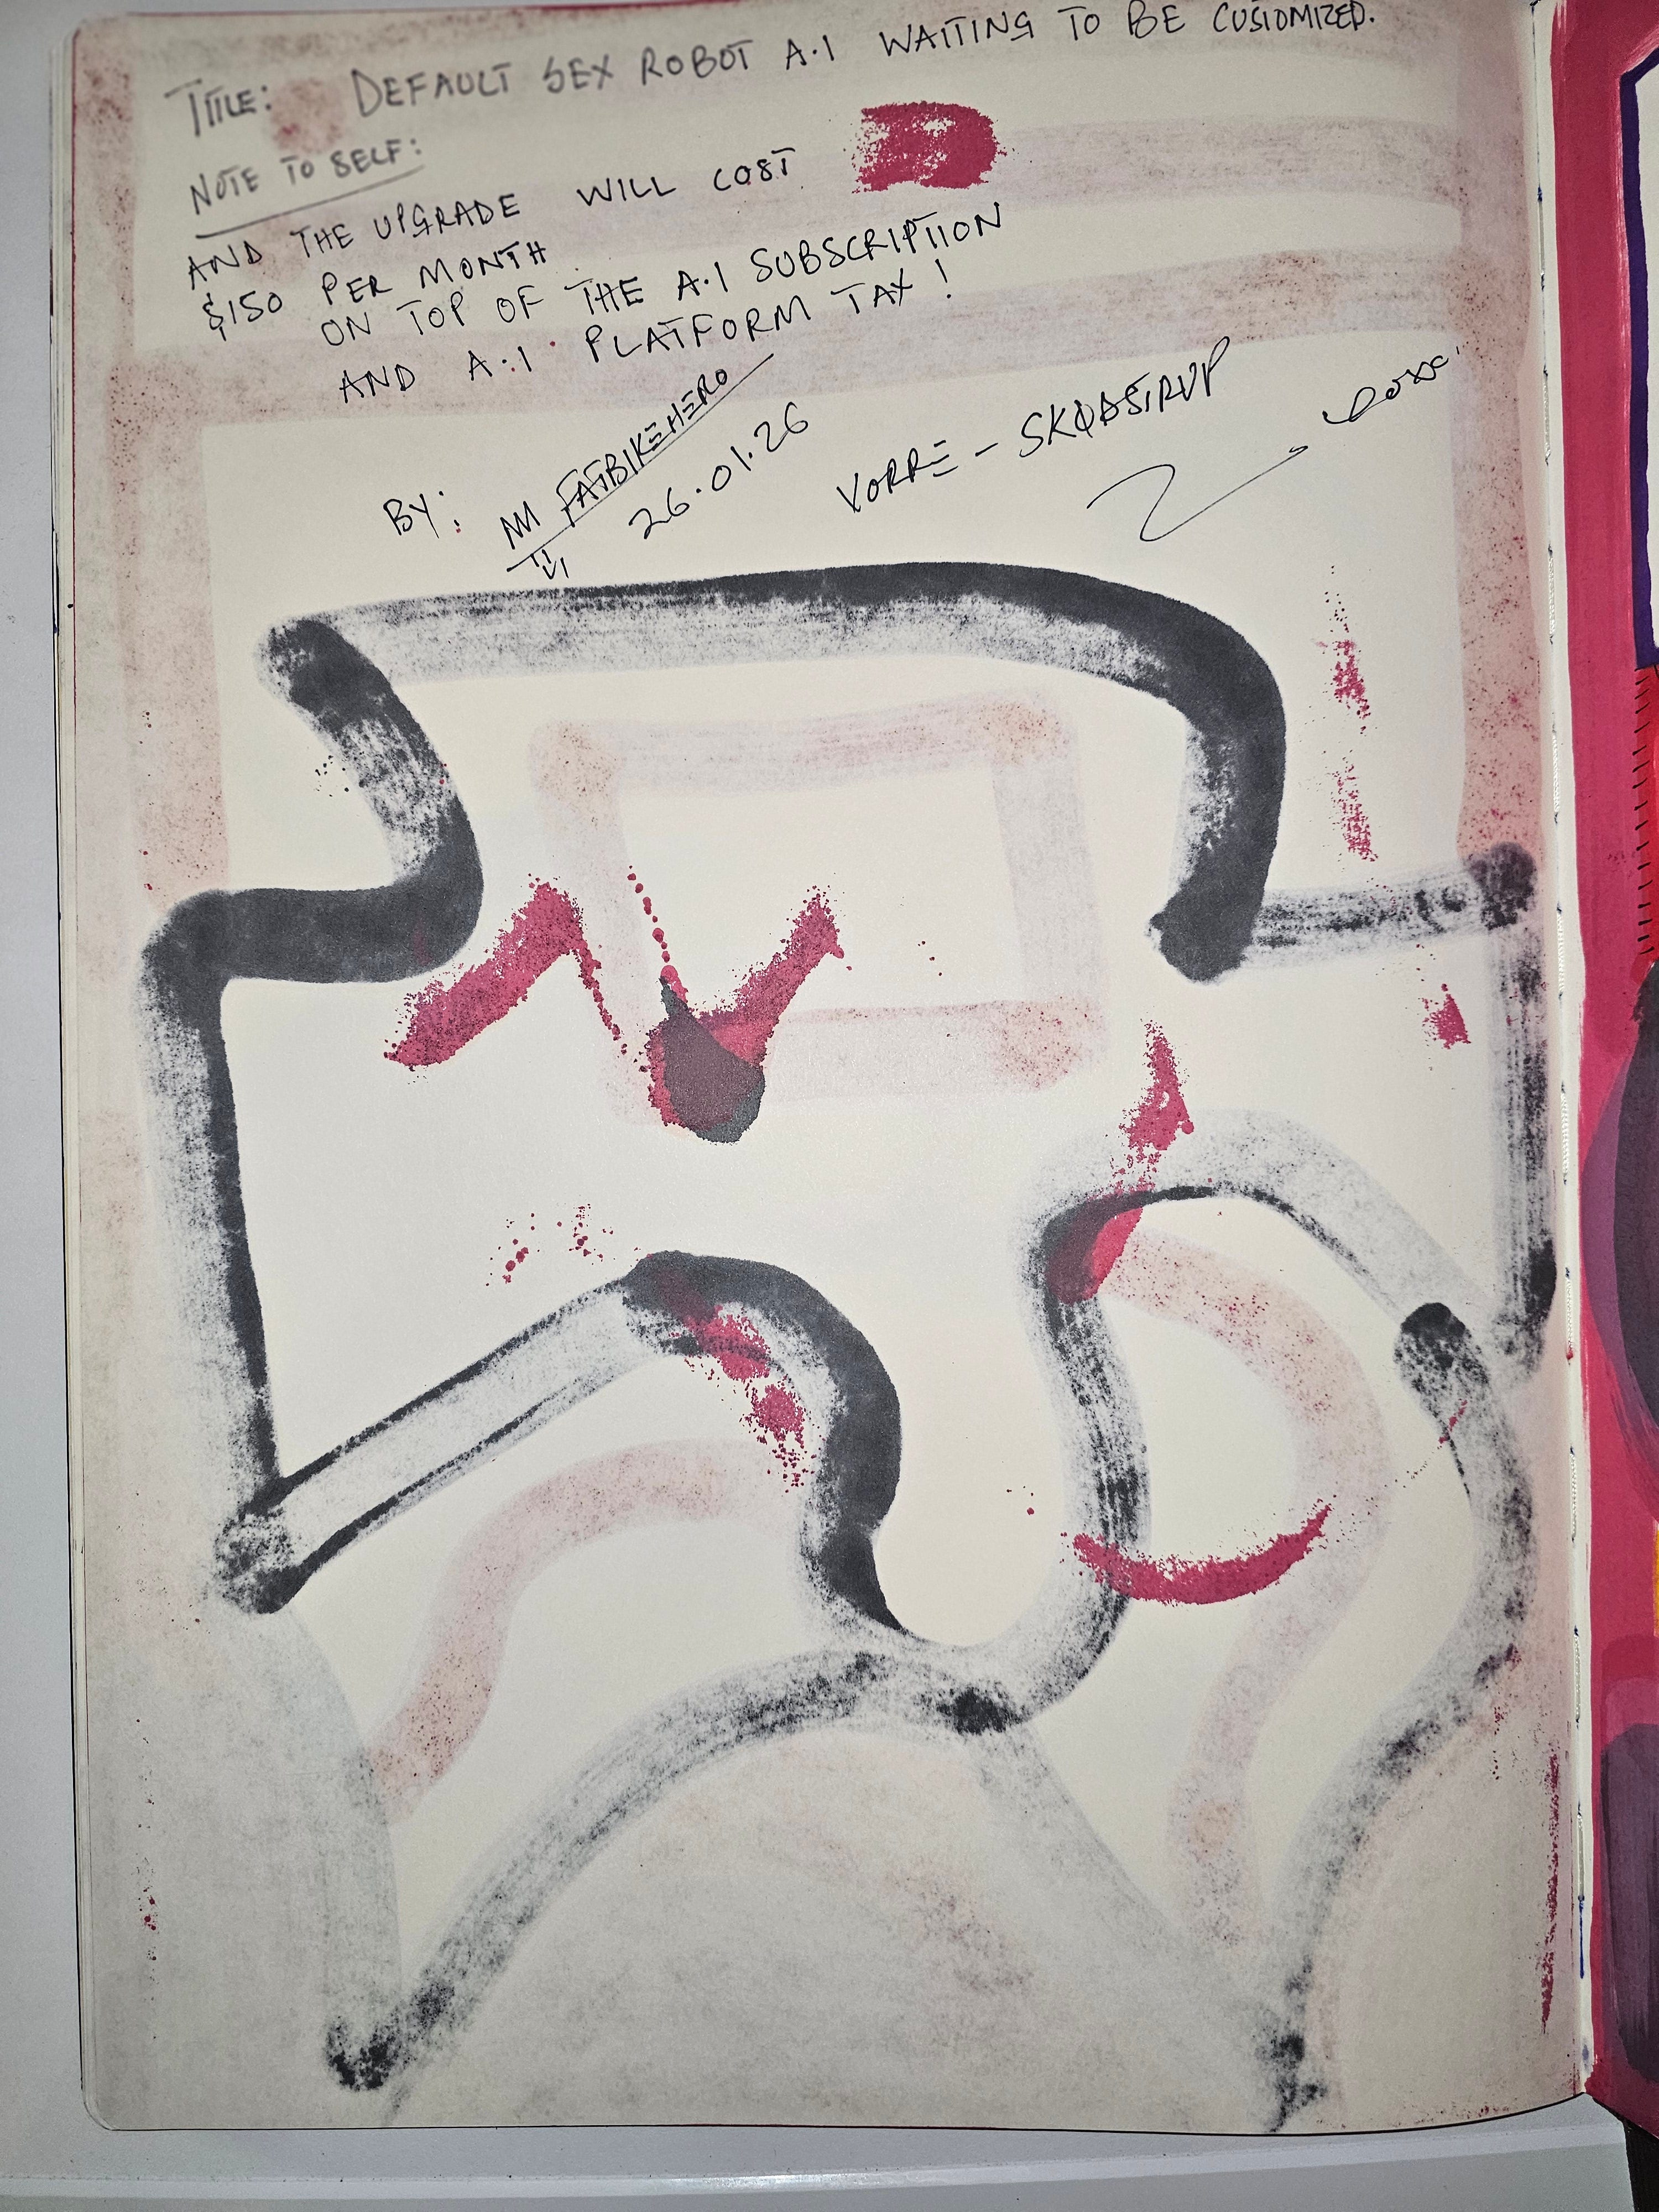 TITLE: DEFAULT SEX ROBOT A.I WAITING TO BE CUSTOMIZED.
NOTE TO SELF:
AND THE UPGRADE WILL COST
$150 PER MONTH
ON TOP OF THE A.I SUBSCRIPTION
AND A.I PLATFORM TAX!
BY: FATBIKEHERO
26.01.26
VORRE - SKOASTRUP